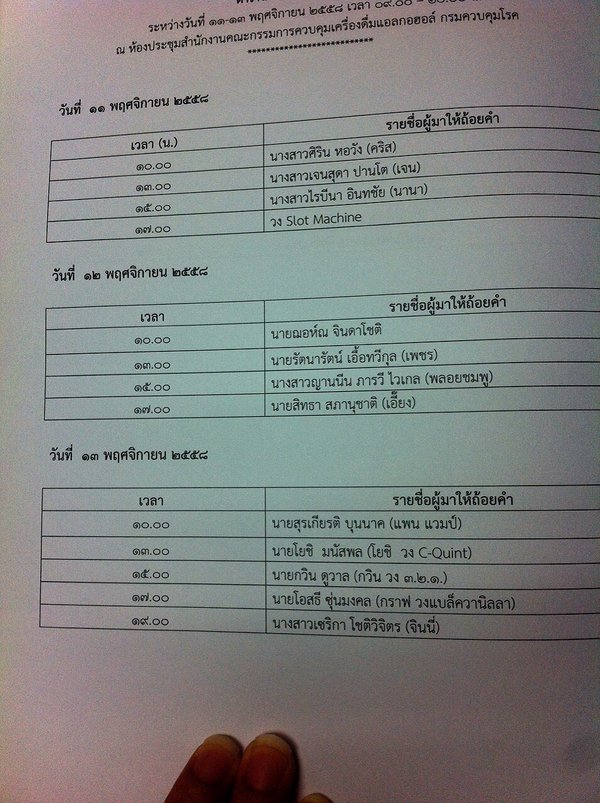 ระหว่างวันที่ ๑๑-๑๓ พฤศจิกายน ๒๕๕๘ เวลา ๐๙.๐๐ –
ณ ห้องประชุมสำนักงานคณะกรรมการควบคุมเครื่องดื่มแอลกอฮอล์ กรมควบคุมโรค
****************************
วันที่ ๑๑ พฤศจิกายน ๒๕๕๘
เวลา (น.) รายชื่อผู้มาให้ถ้อยคำ
๑๐.๐๐ นางสาวศิริน หอวัง (คริส)
๑๓.๐๐ นางสาวเจนสุดา ปานโต (เจน)
๑๕.๐๐ นางสาวไรบีนา อินทชัย (นานา)
๑๗.๐๐ วง Slot Machine
วันที่ ๑๒ พฤศจิกายน ๒๕๕๘
เวลา รายชื่อผู้มาให้ถ้อยคำ
๑๐.๐๐ นายฌอห์ณ จินดาโชติ
๑๓.๐๐ นายรัตนารัตน์ เอื้อทวีกุล (เพชร)
๑๕.๐๐ นางสาวญานนีน ภารวี ไวเกล (พลอยชมพู)
๑๗.๐๐ นายสิทธา สภานุชาติ (เอี๊ยง)
วันที่ ๑๓ พฤศจิกายน ๒๕๕๘
เวลา รายชื่อผู้มาให้ถ้อยคำ
๑๐.๐๐ นายสุรเกียรติ บุนนาค (แพน แวมป์)
๑๓.๐๐ นายโยชิ มนัสพล (โยชิ วง C-Quint)
๑๕.๐๐ นายกวิน ดูวาล (กวิน วง ๓.๒.๑.)
๑๗.๐๐ นายโอสธี ซุ่นมงคล (กราฟ วงแบล็ควานิลลา)
๑๙.๐๐ นางสาวเซริกา โชติวิจิตร (จินนี่)